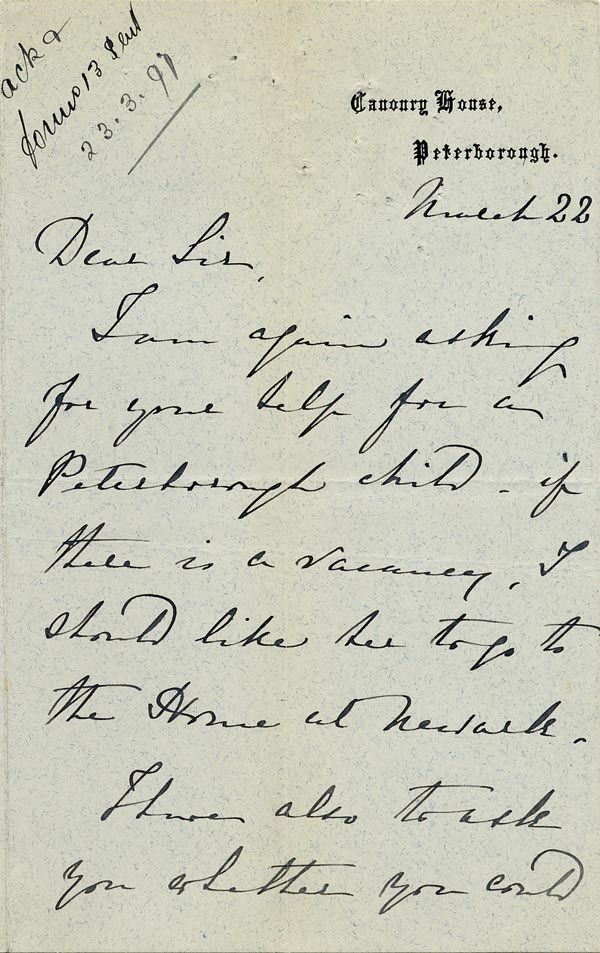 ack &
forms 13 sent
23.3.97
Canonry House,
Peterborough.
March 22
Dear Sir,
I am again asking
for your help for a
Peterborough child - if
there is a vacancy, I
should like her to go to
the Home at Newark.
I have also to ask
you whether you could